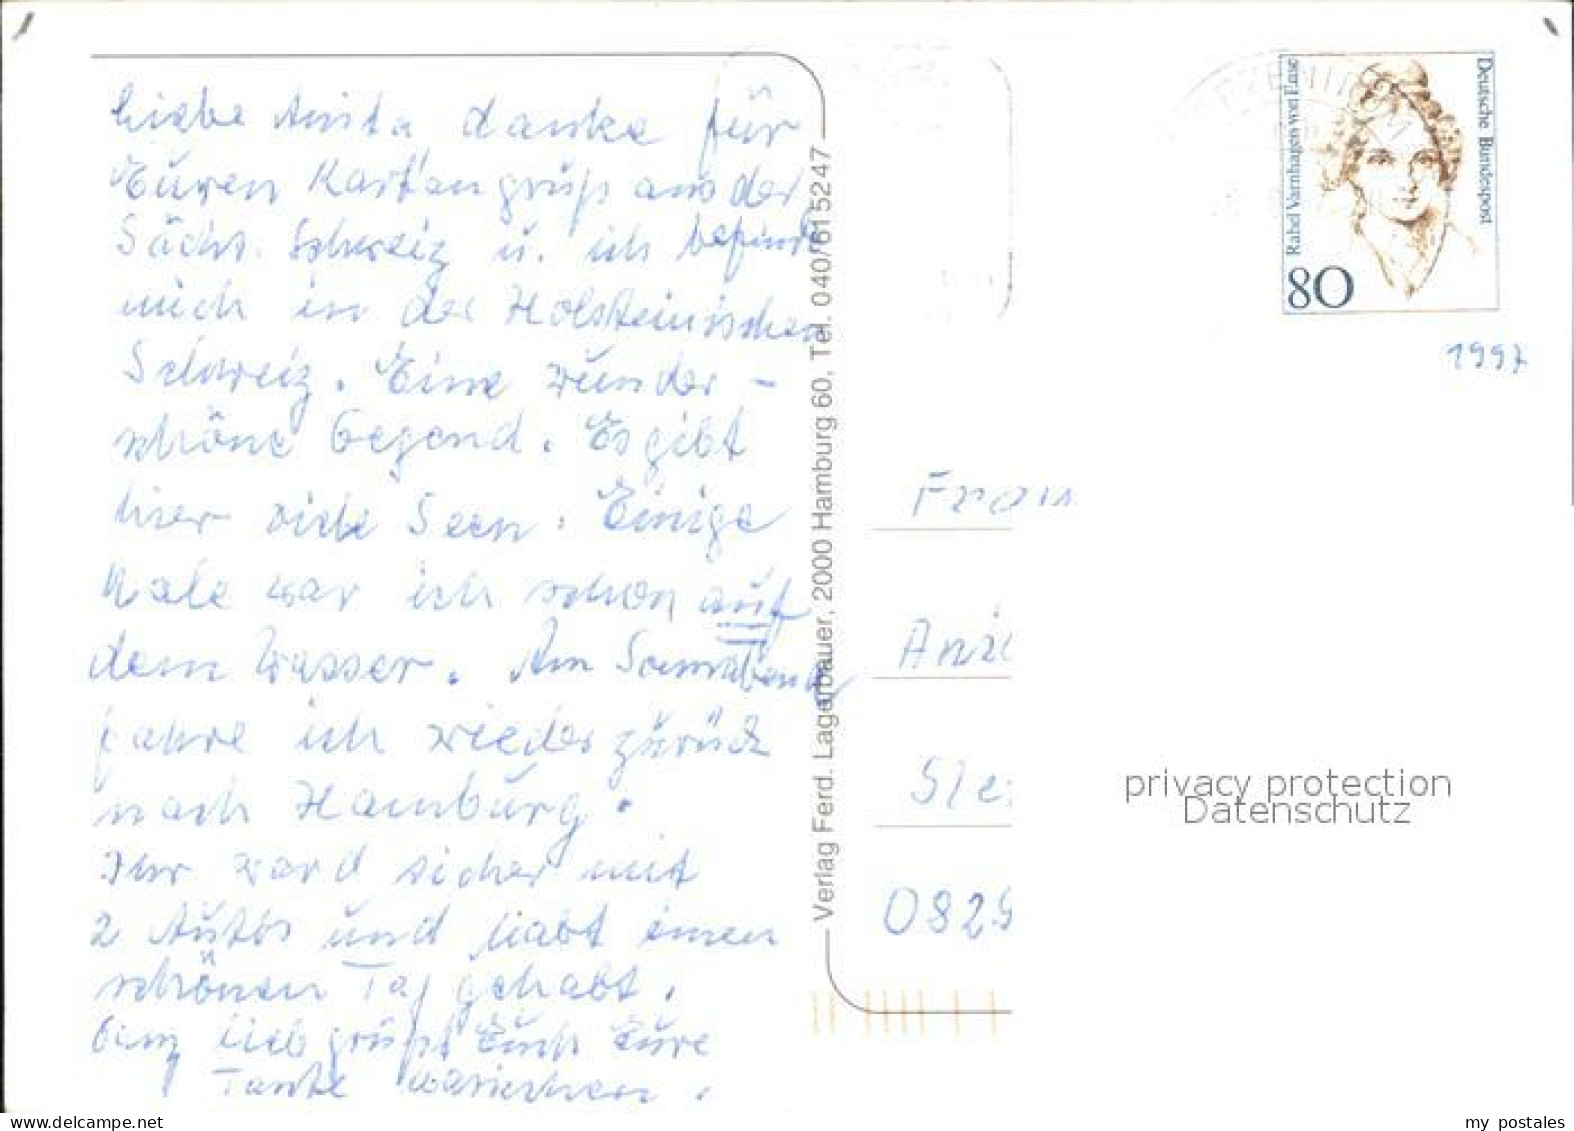 Liebe Anita, danke für
Euren Kartengruß aus der
Sächs. Schweiz u. ich befinde
mich in der Holsteinischen
Schweiz. Eine wunder-
schöne Gegend. Es gibt
hier viele Seen. Einige
Male war ich schon auf
dem Wasser. Am Sonnabend
fahre ich wieder zurück
nach Hamburg.
Ihr ward sicher mit
2 Autos und habt einen
schönen Tag gehabt.
Ganz lieb grüßt Euch Eure
Tante
Verlag Ferd. Lagerbauer, 2000 Hamburg 60, Tel. 040/615247
Deutsche Bundespost
Rahel Varnhagen von Ense
80
1997
Frau
0829
privacy protection
Datenschutz
www.delcampe.net
my_postales